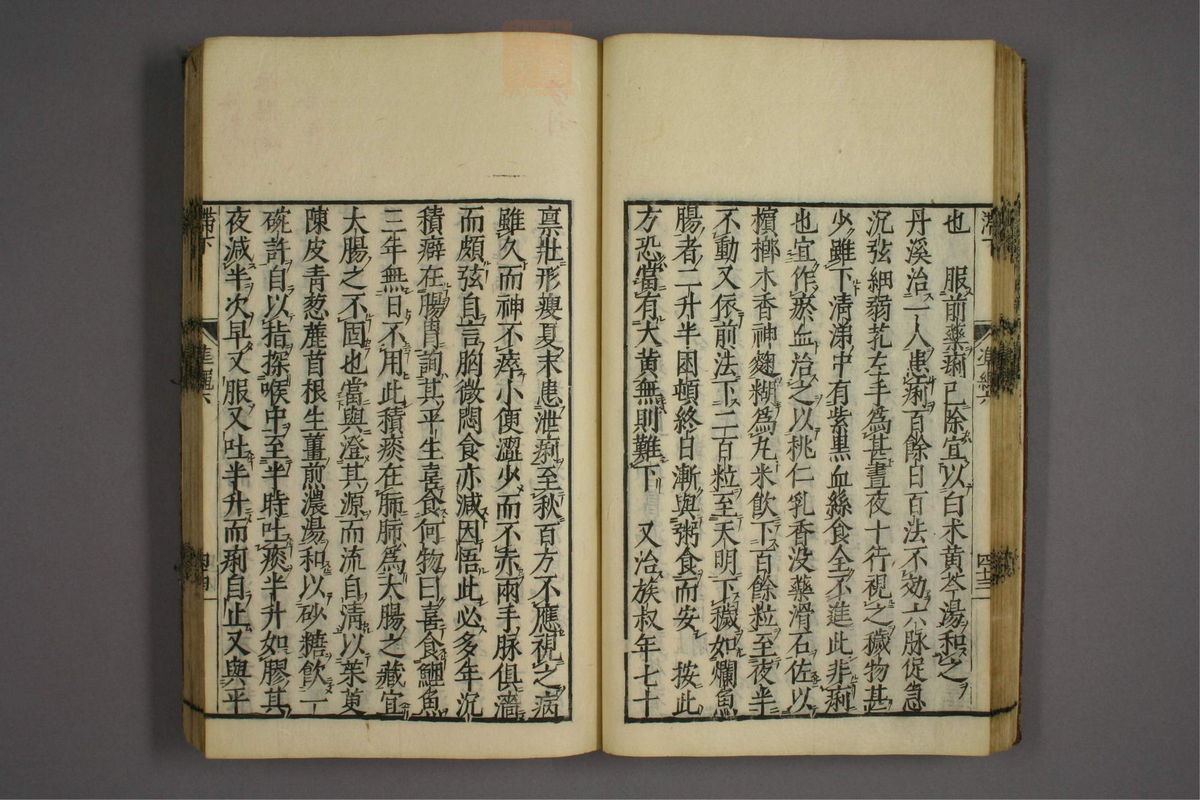 也　服前藥痢已除宜以白术黄芩湯和之
丹溪治一人患痢百餘日百法不効六脉促急
沉弦細弱芤左手爲甚晝夜十行視之穢物甚
少雖下清涕中有紫黒血絲食全不進此非痢
也宜作瘀血治之以桃仁乳香没藥滑石佐以
檳榔木香神麯糊爲丸米飲下百餘粒至夜半
不動又依前法下二百粒至天明下穢如爛魚
腸者二升半困頓終日漸與粥食而安　按此
方恐當有大黄無則難下　又治族叔年七十
禀壯形瘦夏末患泄痢至秋百方不應視之病
雖久而神不瘁小便澀少而不赤兩手脉俱濇
而頗弦自言胸微悶食亦减因悟此必多年沉
積癖在腸胃詢其平生喜食何物曰喜食鯉魚
三年無日不用此積痰在肺肺爲大腸之藏宜
大腸之不固也當與澄其源而流自清以茱萸
陳皮青葱蔍首根生薑煎濃湯和以砂糖飲一
碗許自以指探喉中至半時吐痰半升如膠其
夜减半次早又服又吐半升而痢自止又與平
滞下
準繩六
四十三
滯下
準繩六
四十四